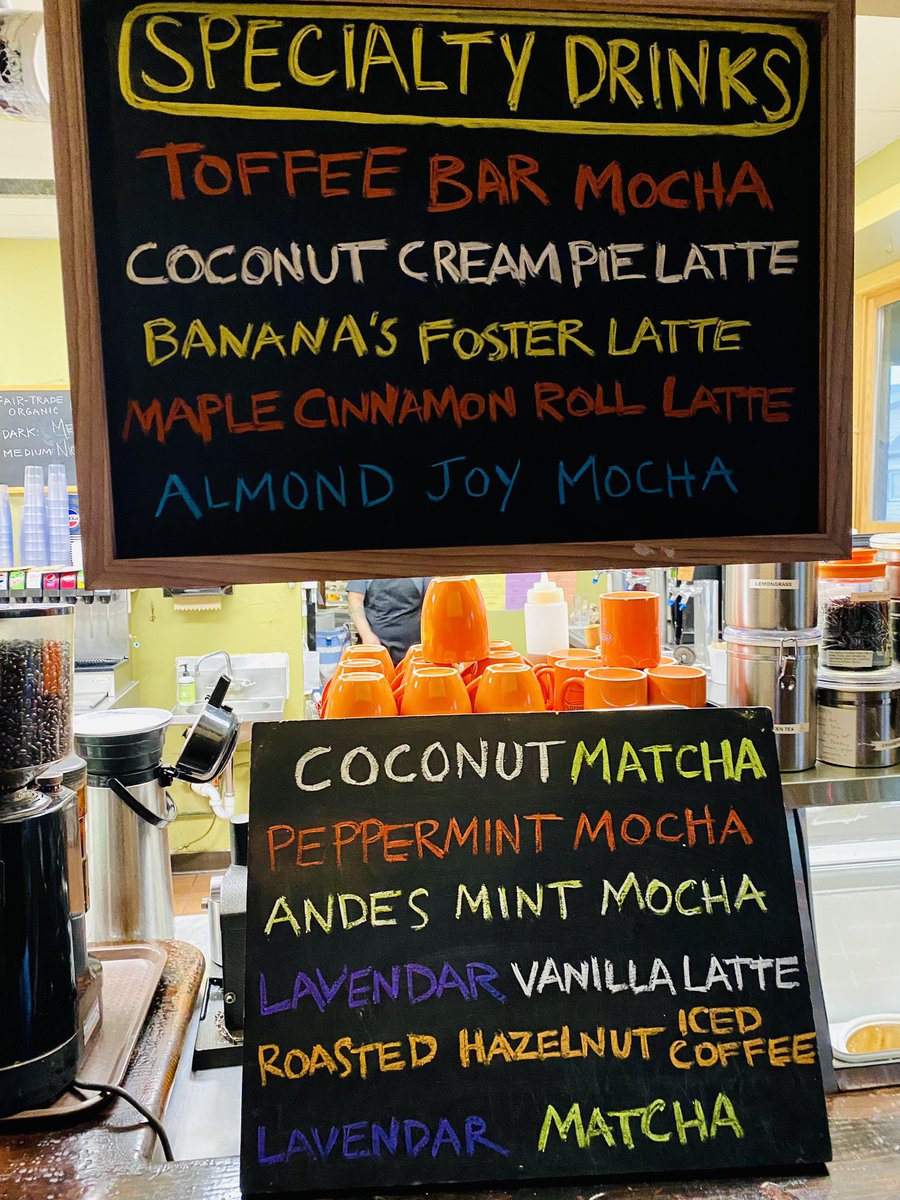 SPECIALTY DRINKS
TOFFEE BAR MOCHA
COCONUT CREAM PIE LATTE
BANANA'S FOSTER LATTE
MAPLE CINNAMON ROLL LATTE
ALMOND JOY MOCHA
FAIR-TRADE
ORGANIC
DARK:
MEDIUM:
LEMONGRASS
COCONUT MATCHA
PEPPERMINT MOCHA
ANDES MINT MOCHA
LAVENDAR VANILLA LATTE
ROASTED HAZELNUT ICED COFFEE
LAVENDAR MATCHA